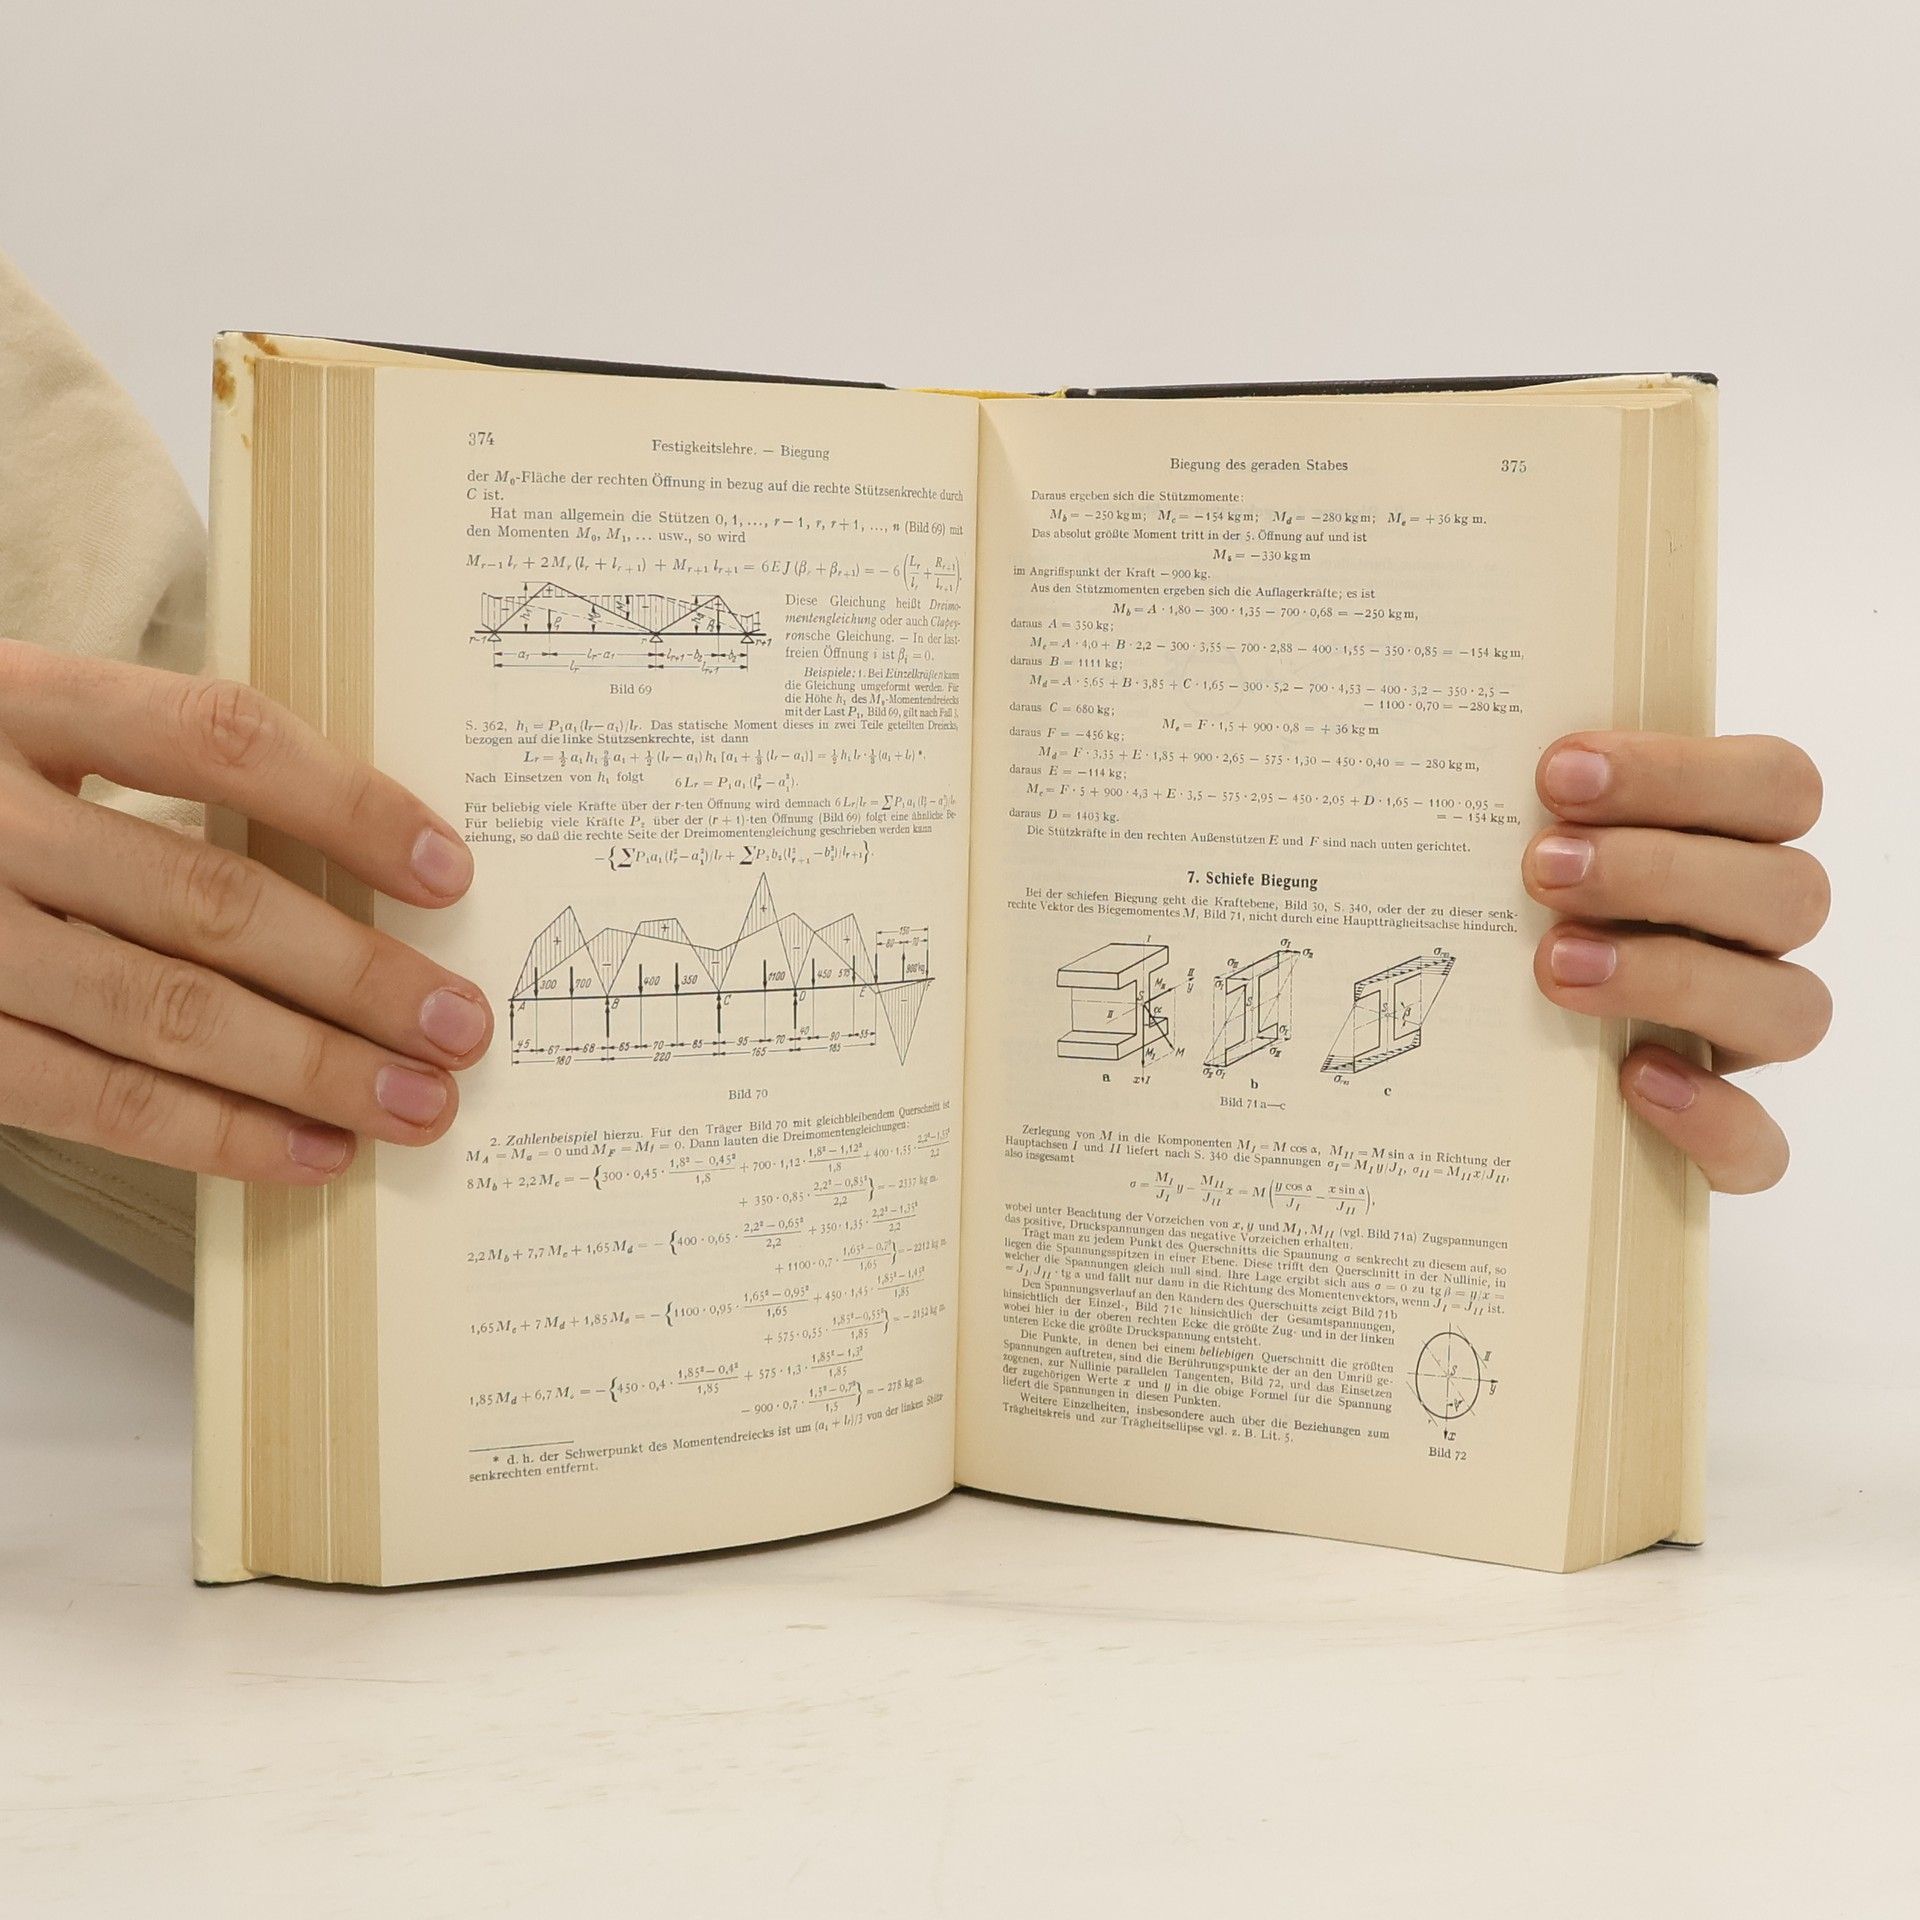 374
Festigkeitslehre. — Biegung
der M₀-Fläche der rechten Öffnung in bezug auf die rechte Stützsenkrechte durch
C ist.
Hat man allgemein die Stützen 0, 1, ..., r − 1, r, r + 1, ..., n (Bild 69) mit
den Momenten M₀, M₁, ... usw., so wird
Mᵣ₋₁ lᵣ + 2 Mᵣ (lᵣ + lᵣ₊₁) + Mᵣ₊₁ lᵣ₊₁ = 6 E J (βᵣ + βᵣ₊₁) = − 6 (Lᵣ/lᵣ + Rᵣ₊₁/lᵣ₊₁).
Diese Gleichung heißt Dreimo-
mentengleichung oder auch Clapey-
ronsche Gleichung. — In der last-
freien Öffnung i ist βᵢ = 0.
r−1 r r+1
a₁ lᵣ−a₁ lᵣ₊₁−b₂ b₂
lᵣ lᵣ₊₁
Bild 69
Beispiele: 1. Bei Einzelkräften kann
die Gleichung umgeformt werden. Für
die Höhe h₁ des M₀-Momentendreiecks
mit der Last P₁, Bild 69, gilt nach Fall 3,
S. 362, h₁ = P₁a₁(lᵣ−a₁)/lᵣ. Das statische Moment dieses in zwei Teile geteilten Dreiecks,
bezogen auf die linke Stützsenkrechte, ist dann
Lᵣ = ½ a₁h₁ ⅔ a₁ + ½ (lᵣ − a₁) h₁ [a₁ + ⅓ (lᵣ − a₁)] = ½ h₁lᵣ · ⅓ (a₁ + lᵣ) *.
Nach Einsetzen von h₁ folgt 6 Lᵣ = P₁a₁ (lᵣ² − a₁²).
Für beliebig viele Kräfte über der r-ten Öffnung wird demnach 6 Lᵣ/lᵣ = ∑P₁a₁(lᵣ² − a₁²)/lᵣ.
Für beliebig viele Kräfte P₂ über der (r + 1)-ten Öffnung (Bild 69) folgt eine ähnliche Be-
ziehung, so daß die rechte Seite der Dreimomentengleichung geschrieben werden kann
−{∑P₁a₁(lᵣ²−a₁²)/lᵣ + ∑P₂b₂(lᵣ₊₁²−b₂²)/lᵣ₊₁}.
150
80 70
300 700 400 350 1100 450 575 900kg
A B C D E F
45 67 68 65 70 85 95 70 40 90 55
180 220 165 185
Bild 70
2. Zahlenbeispiel hierzu. Für den Träger Bild 70 mit gleichbleibendem Querschnitt ist
M_A = M_a = 0 und M_F = M_f = 0. Dann lauten die Dreimomentengleichungen:
8 M_b + 2,2 M_c = −{300 · 0,45 · (1,8² − 0,45²)/1,8 + 700 · 1,12 · (1,8² − 1,12²)/1,8 + 400 · 1,55 · (2,2² − 1,55²)/2,2
+ 350 · 0,85 · (2,2² − 0,85²)/2,2} = − 2337 kg m.
2,2 M_b + 7,7 M_c + 1,65 M_d = −{400 · 0,65 · (2,2² − 0,65²)/2,2 + 350 · 1,35 · (2,2² − 1,35²)/2,2
+ 1100 · 0,7 · (1,65² − 0,7²)/1,65} = − 2212 kg m.
1,65 M_c + 7 M_d + 1,85 M_e = −{1100 · 0,95 · (1,65² − 0,95²)/1,65 + 450 · 1,45 · (1,85² − 1,45²)/1,85
+ 575 · 0,55 · (1,85² − 0,55²)/1,85} = − 2152 kg m.
1,85 M_d + 6,7 M_e = −{450 · 0,4 · (1,85² − 0,4²)/1,85 + 575 · 1,3 · (1,85² − 1,3²)/1,85
− 900 · 0,7 · (1,5² − 0,7²)/1,5} = − 278 kg m.
* d. h. der Schwerpunkt des Momentendreiecks ist um (a₁ + lᵣ)/3 von der linken Stütz-
senkrechten entfernt.
Biegung des geraden Stabes
375
Daraus ergeben sich die Stützmomente:
M_b = −250 kg m; M_c = −154 kg m; M_d = −280 kg m; M_e = + 36 kg m.
Das absolut größte Moment tritt in der 5. Öffnung auf und ist
M₅ = −330 kg m
im Angriffspunkt der Kraft −900 kg.
Aus den Stützmomenten ergeben sich die Auflagerkräfte; es ist
M_b = A · 1,80 − 300 · 1,35 − 700 · 0,68 = −250 kg m,
daraus A = 350 kg;
M_c = A · 4,0 + B · 2,2 − 300 · 3,55 − 700 · 2,88 − 400 · 1,55 − 350 · 0,85 = −154 kg m,
daraus B = 1111 kg;
M_d = A · 5,65 + B · 3,85 + C · 1,65 − 300 · 5,2 − 700 · 4,53 − 400 · 3,2 − 350 · 2,5 −
− 1100 · 0,70 = −280 kg m,
daraus C = 680 kg;
M_e = F · 1,5 + 900 · 0,8 = + 36 kg m
daraus F = −456 kg;
M_d = F · 3,35 + E · 1,85 + 900 · 2,65 − 575 · 1,30 − 450 · 0,40 = − 280 kg m,
daraus E = −114 kg;
M_c = F · 5 + 900 · 4,3 + E · 3,5 − 575 · 2,95 − 450 · 2,05 + D · 1,65 − 1100 · 0,95 =
= − 154 kg m,
daraus D = 1403 kg.
Die Stützkräfte in den rechten Außenstützen E und F sind nach unten gerichtet.
7. Schiefe Biegung
Bei der schiefen Biegung geht die Kraftebene, Bild 30, S. 340, oder der zu dieser senk-
rechte Vektor des Biegemomentes M, Bild 71, nicht durch eine Hauptträgheitsachse hindurch.
a b c
Bild 71 a—c
Zerlegung von M in die Komponenten M_I = M cos α, M_II = M sin α in Richtung der
Hauptachsen I und II liefert nach S. 340 die Spannungen σ_I = M_I y/J_I, σ_II = M_II x/J_II,
also insgesamt
σ = M_I/J_I y − M_II/J_II x = M (y cos α/J_I − x sin α/J_II),
wobei unter Beachtung der Vorzeichen von x, y und M_I, M_II (vgl. Bild 71a) Zugspannungen
das positive, Druckspannungen das negative Vorzeichen erhalten.
Trägt man zu jedem Punkt des Querschnitts die Spannung σ senkrecht zu diesem auf, so
liegen die Spannungsspitzen in einer Ebene. Diese trifft den Querschnitt in der Nullinie, in
welcher die Spannungen gleich null sind. Ihre Lage ergibt sich aus σ = 0 zu tg β = y/x =
= J_I/J_II · tg α und fällt nur dann in die Richtung des Momentenvektors, wenn J_I = J_II ist.
Den Spannungsverlauf an den Rändern des Querschnitts zeigt Bild 71b
hinsichtlich der Einzel-, Bild 71c hinsichtlich der Gesamtspannungen,
wobei hier in der oberen rechten Ecke die größte Zug- und in der linken
unteren Ecke die größte Druckspannung entsteht.
Die Punkte, in denen bei einem beliebigen Querschnitt die größten
Spannungen auftreten, sind die Berührungspunkte der an den Umriß ge-
zogenen, zur Nullinie parallelen Tangenten, Bild 72, und das Einsetzen
der zugehörigen Werte x und y in die obige Formel für die Spannung
liefert die Spannungen in diesen Punkten.
Weitere Einzelheiten, insbesondere auch über die Beziehungen zum
Trägheitskreis und zur Trägheitsellipse vgl. z. B. Lit. 5.
S II y x
Bild 72